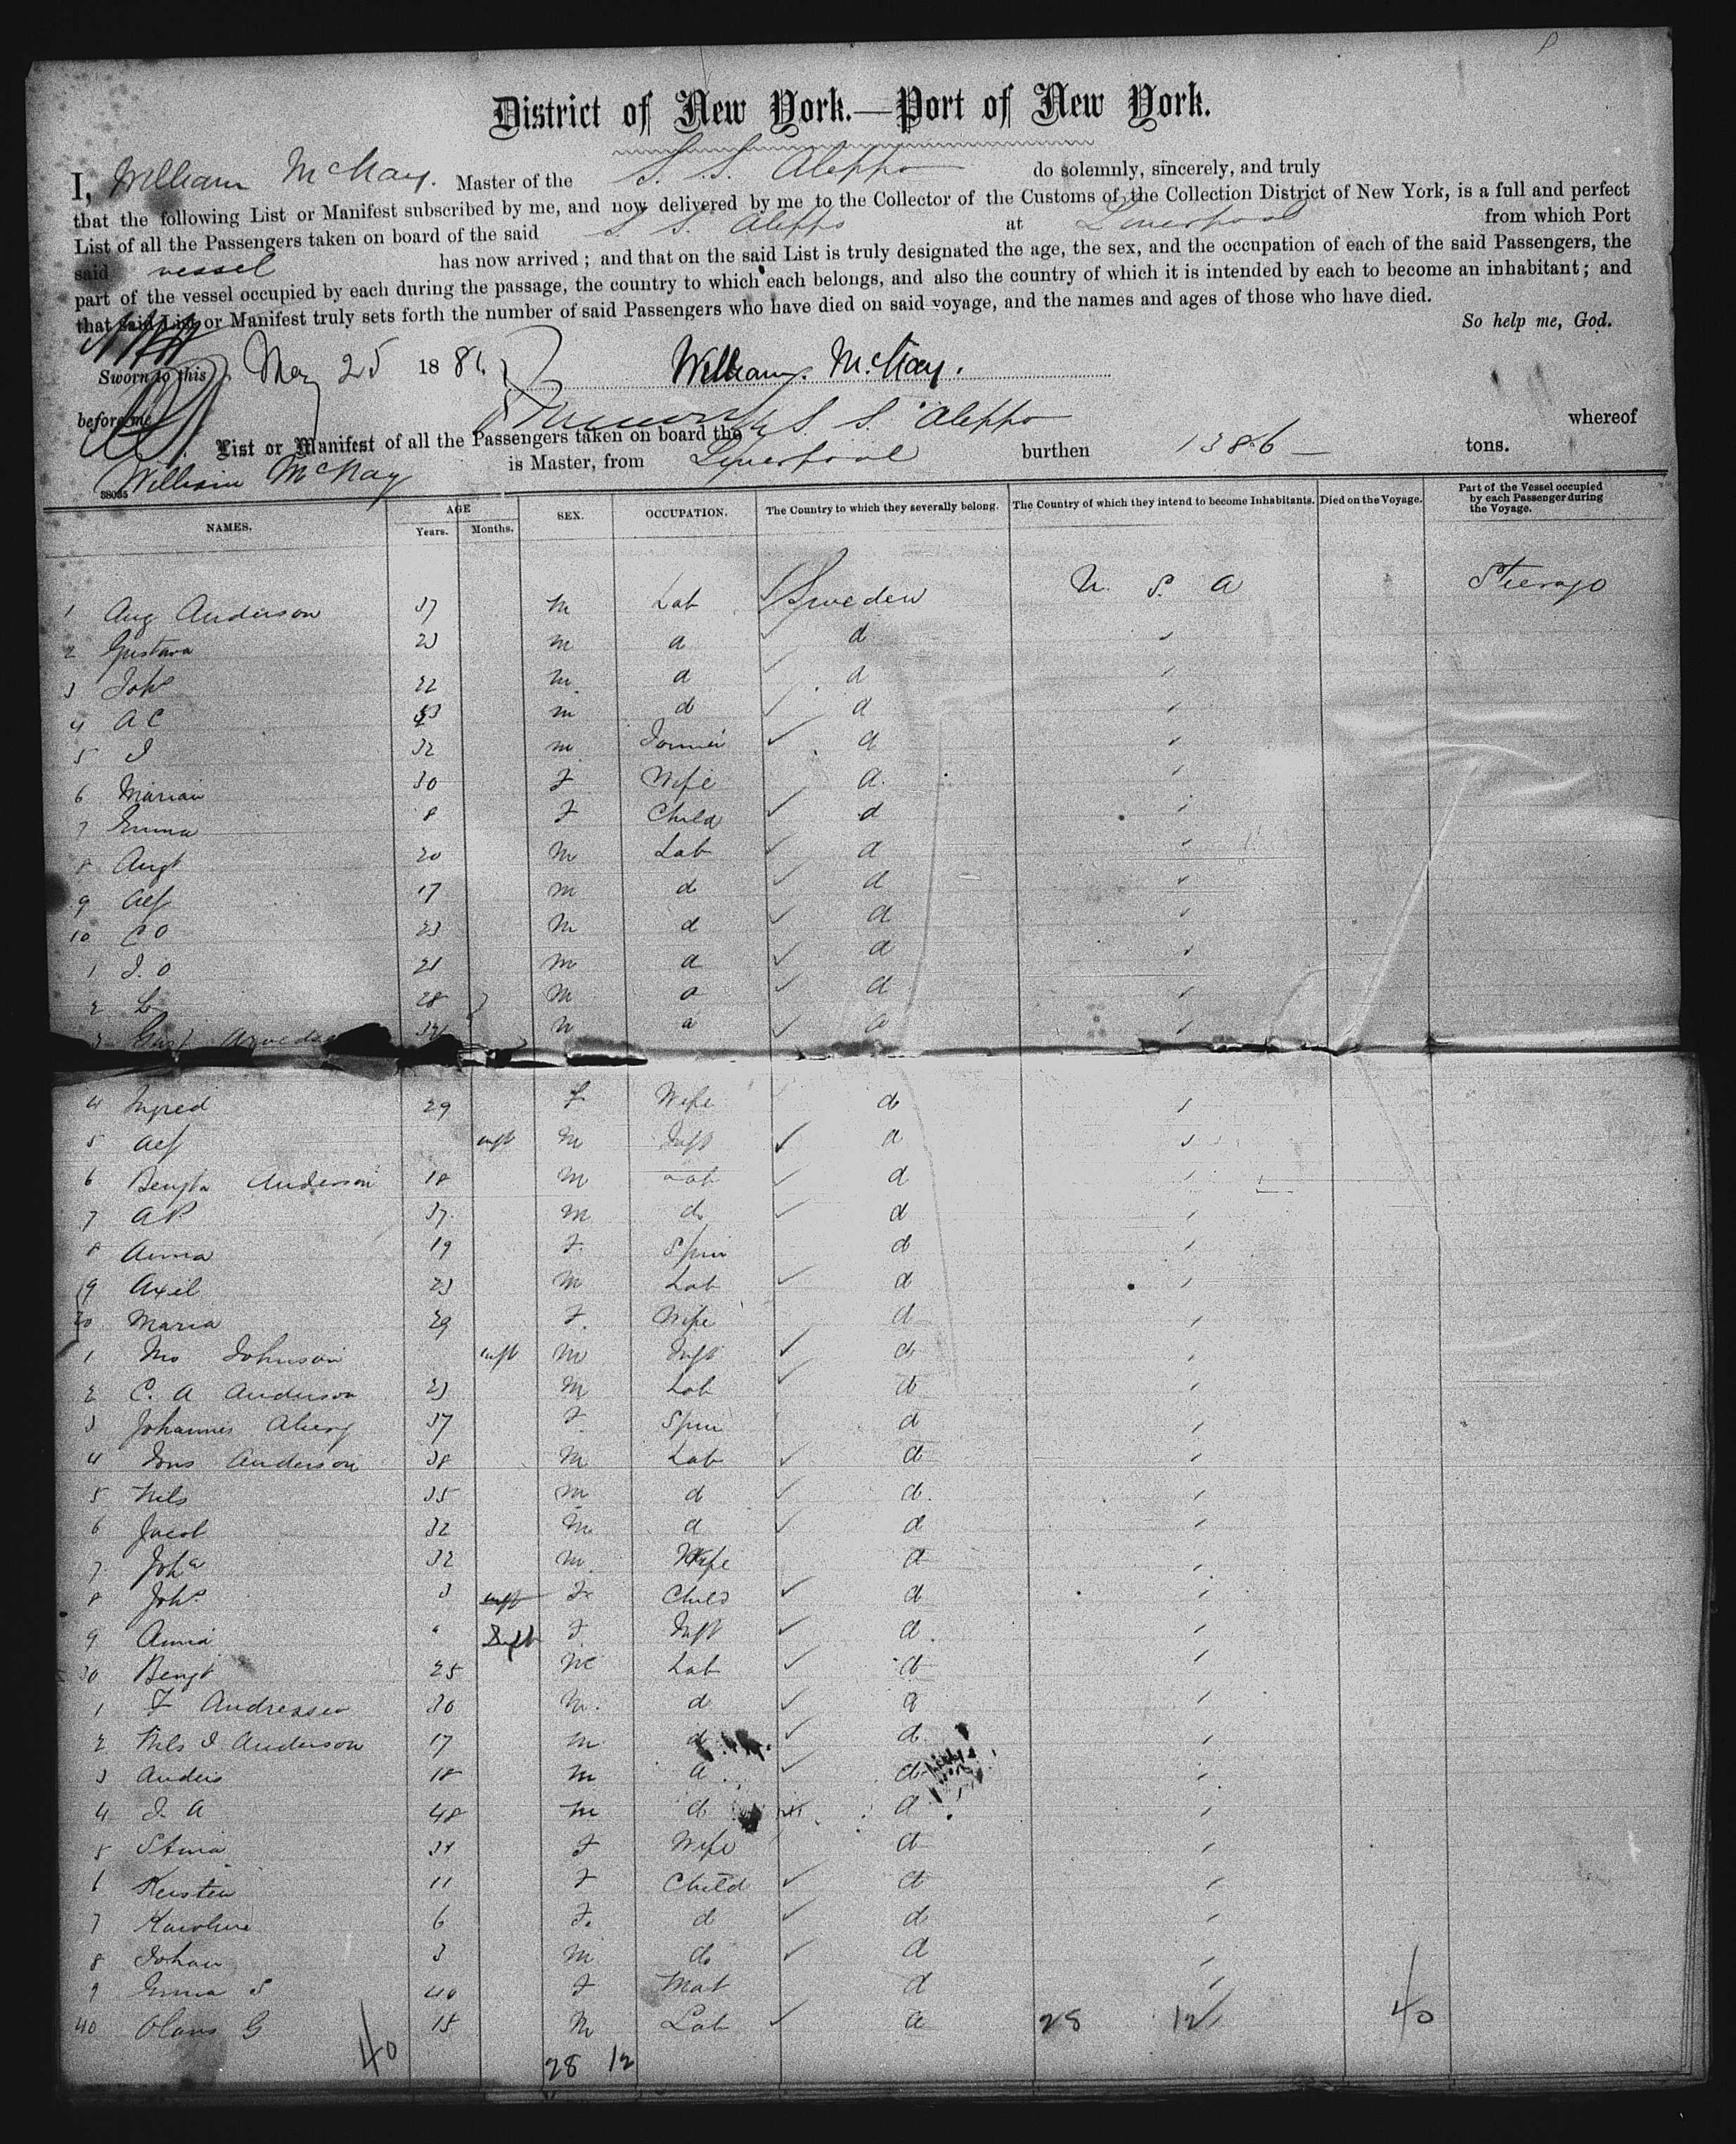 District of New York.—Port of New York.
I, William McKay. Master of the S. S. Aleppo do solemnly, sincerely, and truly
that the following List or Manifest subscribed by me, and now delivered by me to the Collector of the Customs of the Collection District of New York, is a full and perfect
List of all the Passengers taken on board of the said S S. Aleppo at Liverpool from which Port
said vessel has now arrived; and that on the said List is truly designated the age, the sex, and the occupation of each of the said Passengers, the
part of the vessel occupied by each during the passage, the country to which each belongs, and also the country of which it is intended by each to become an inhabitant; and
that said List or Manifest truly sets forth the number of said Passengers who have died on said voyage, and the names and ages of those who have died.
So help me, God.
Sworn to this May 25 1881. William McKay.
before me
List or Manifest of all the Passengers taken on board the S. S. Aleppo whereof
William McKay is Master, from Liverpool burthen 1386 tons.
38095
NAMES. AGE Years. Months. SEX. OCCUPATION. The Country to which they severally belong. The Country of which they intend to become Inhabitants. Died on the Voyage. Part of the Vessel occupied by each Passenger during the Voyage.
1 Aug Anderson 37 M Lab Sweden U. S. A Steerage
2 Gustava 23 M d d
3 Joh 22 M d d
4 A C M d d
5 J 32 M d
6 Marian 30 F Wife d
7 Emma 8 F Child d
8 Augt 20 M Lab d
9 Alf 17 M d d
10 C O 23 M d d
1 J. O 21 M d d
2 L 28 M d d
3 M d d
4 Ingred 29 F Wife d
5 Alf inft M Inft d
6 Bengta Anderson 18 M Lab d
7 A P. 37 M do d
8 Anna 19 F. Spin d
9 Axel 23 M Lab d
20 Maria 29 F. Wife d
1 Johnson inft M Inft d
2 C. A Anderson 23 M Lab d
3 Johannes Aberg 37 F. Spin d
4 Jons Anderson 38 M Lab d
5 Nils 35 M d d
6 Jacob 32 M d d
7 Joha 32 M Wife d
8 Joh 3 inft F Child d
9 Anna " Inft F Inft d
30 Bengt 25 M Lab d
1 F Andreasen 30 M d d
2 Nils J Anderson 17 M d d
3 Anders 18 M d d
4 J. A 48 M d d
5 Stina 34 F Wife d
6 Kersten 11 F Child d
7 Karoline 6 F. d d
8 Johan 3 M do d
9 Emma S 40 F Mat d
40 Olaus G 15 M Lab d 28 12 40
40 28 12